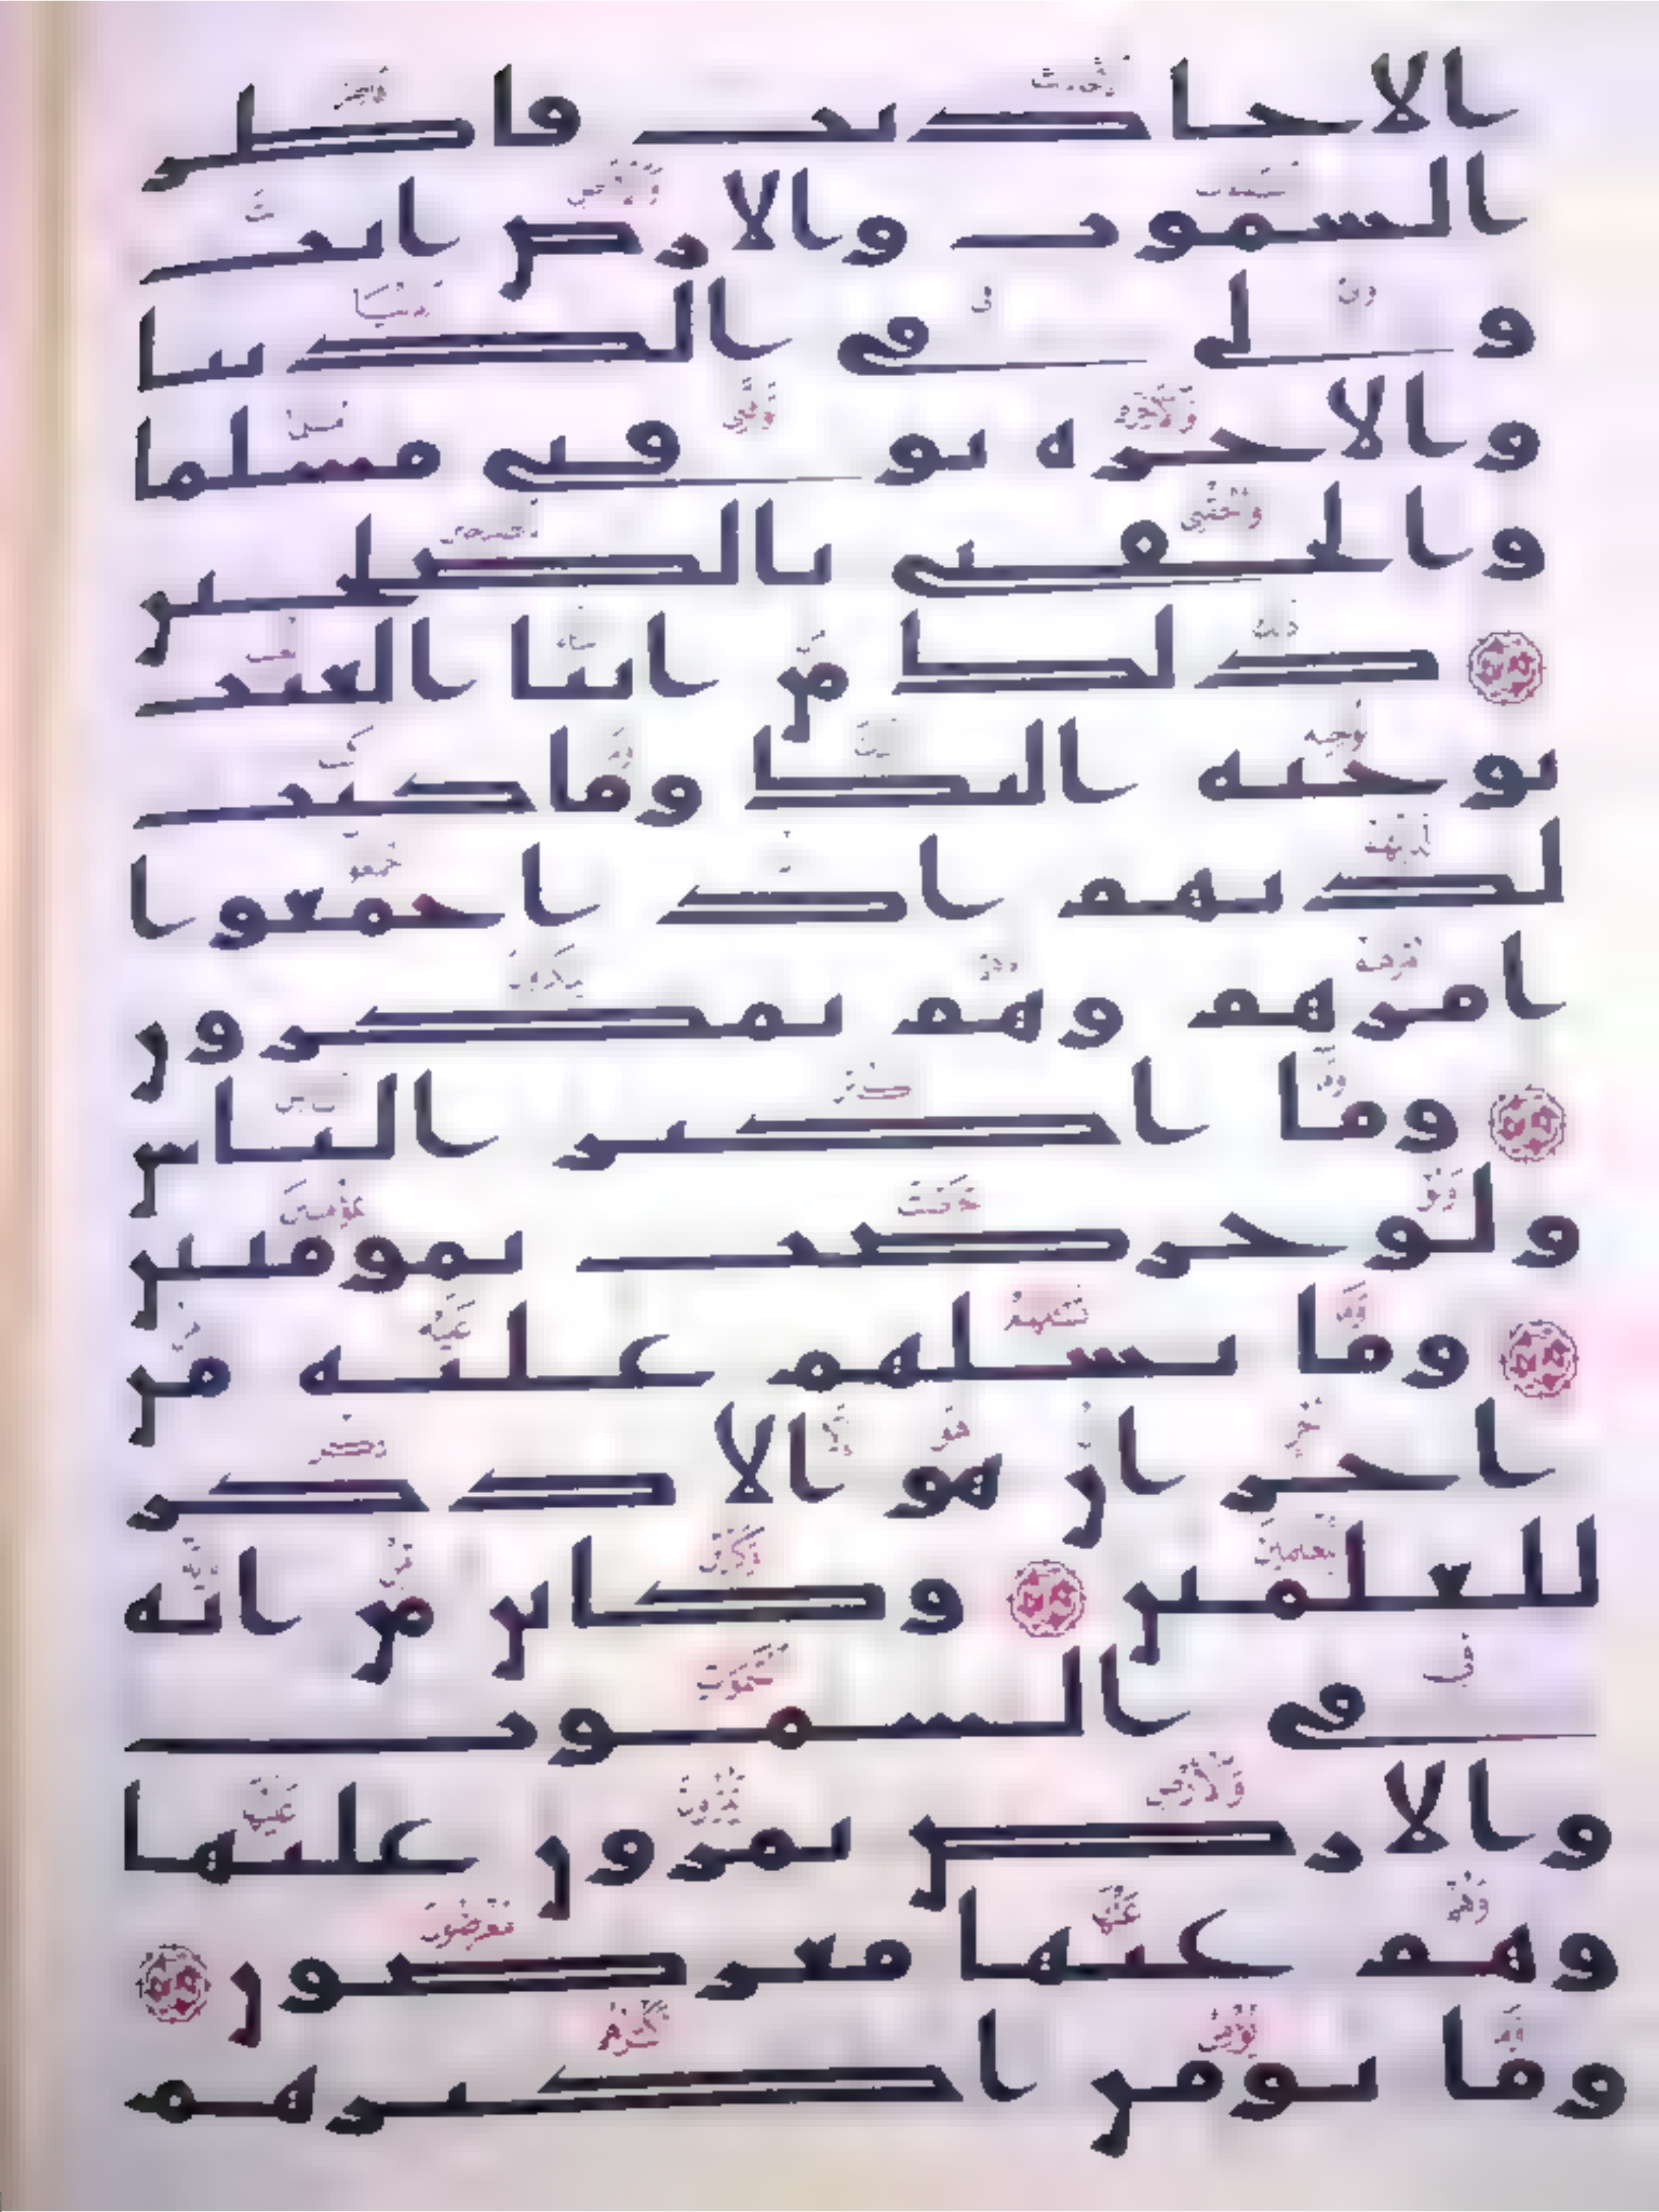 الاحاديث فاطر
السموت والارض انت
ولي في الدنيا
والاخرة توفني مسلما
والحقني بالصلحين
ذلك من انبا الغيب
نوحيه اليك وما كنت
لديهم اذ اجمعوا
امرهم وهم يمكرون
وما اكثر الناس
ولو حرصت بمومنين
وما تسلهم عليه من
اجر ان هو الا ذكر
للعلمين وكاين من اية
في السموت
والارض يمرون عليها
وهم عنها معرضون
وما يومن اكثرهم